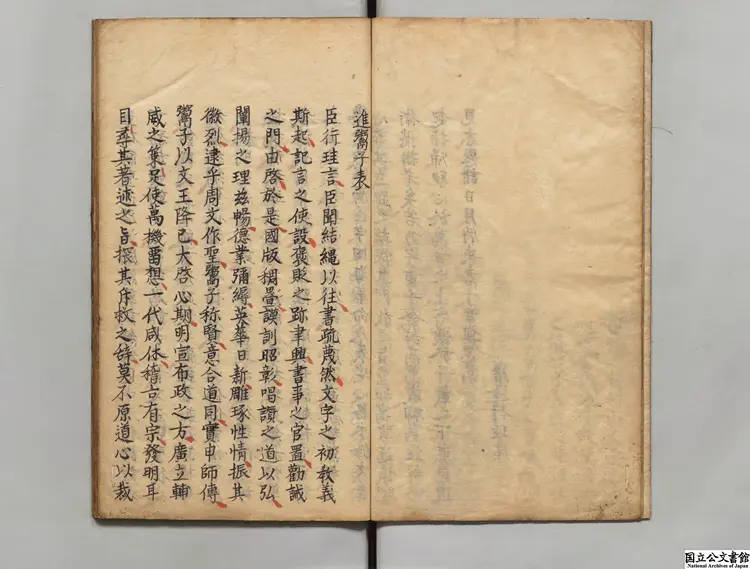 進鬻子表
臣行珪言臣聞結縄以往書疏蔑然文字之初教義
斯起記言之使設褒貶之跡聿興書事之官置勸誡
之門由啓於是國版稠疊謨訓昭彰唱讚之道以弘
闡揚之理玆暢德業彌縟英華日新雕琢性情振其
徽烈逮乎周文作聖鬻子称賢意合道同實申師傳
鬻子以文王降己大啓心期明宣布政之方廣立輔
威之策足使萬機留想一代咸休稽古有宗發明耳
目尋其著述之旨探其斥救之辞莫不原道心以裁
国立公文書館
National Archives of Japan